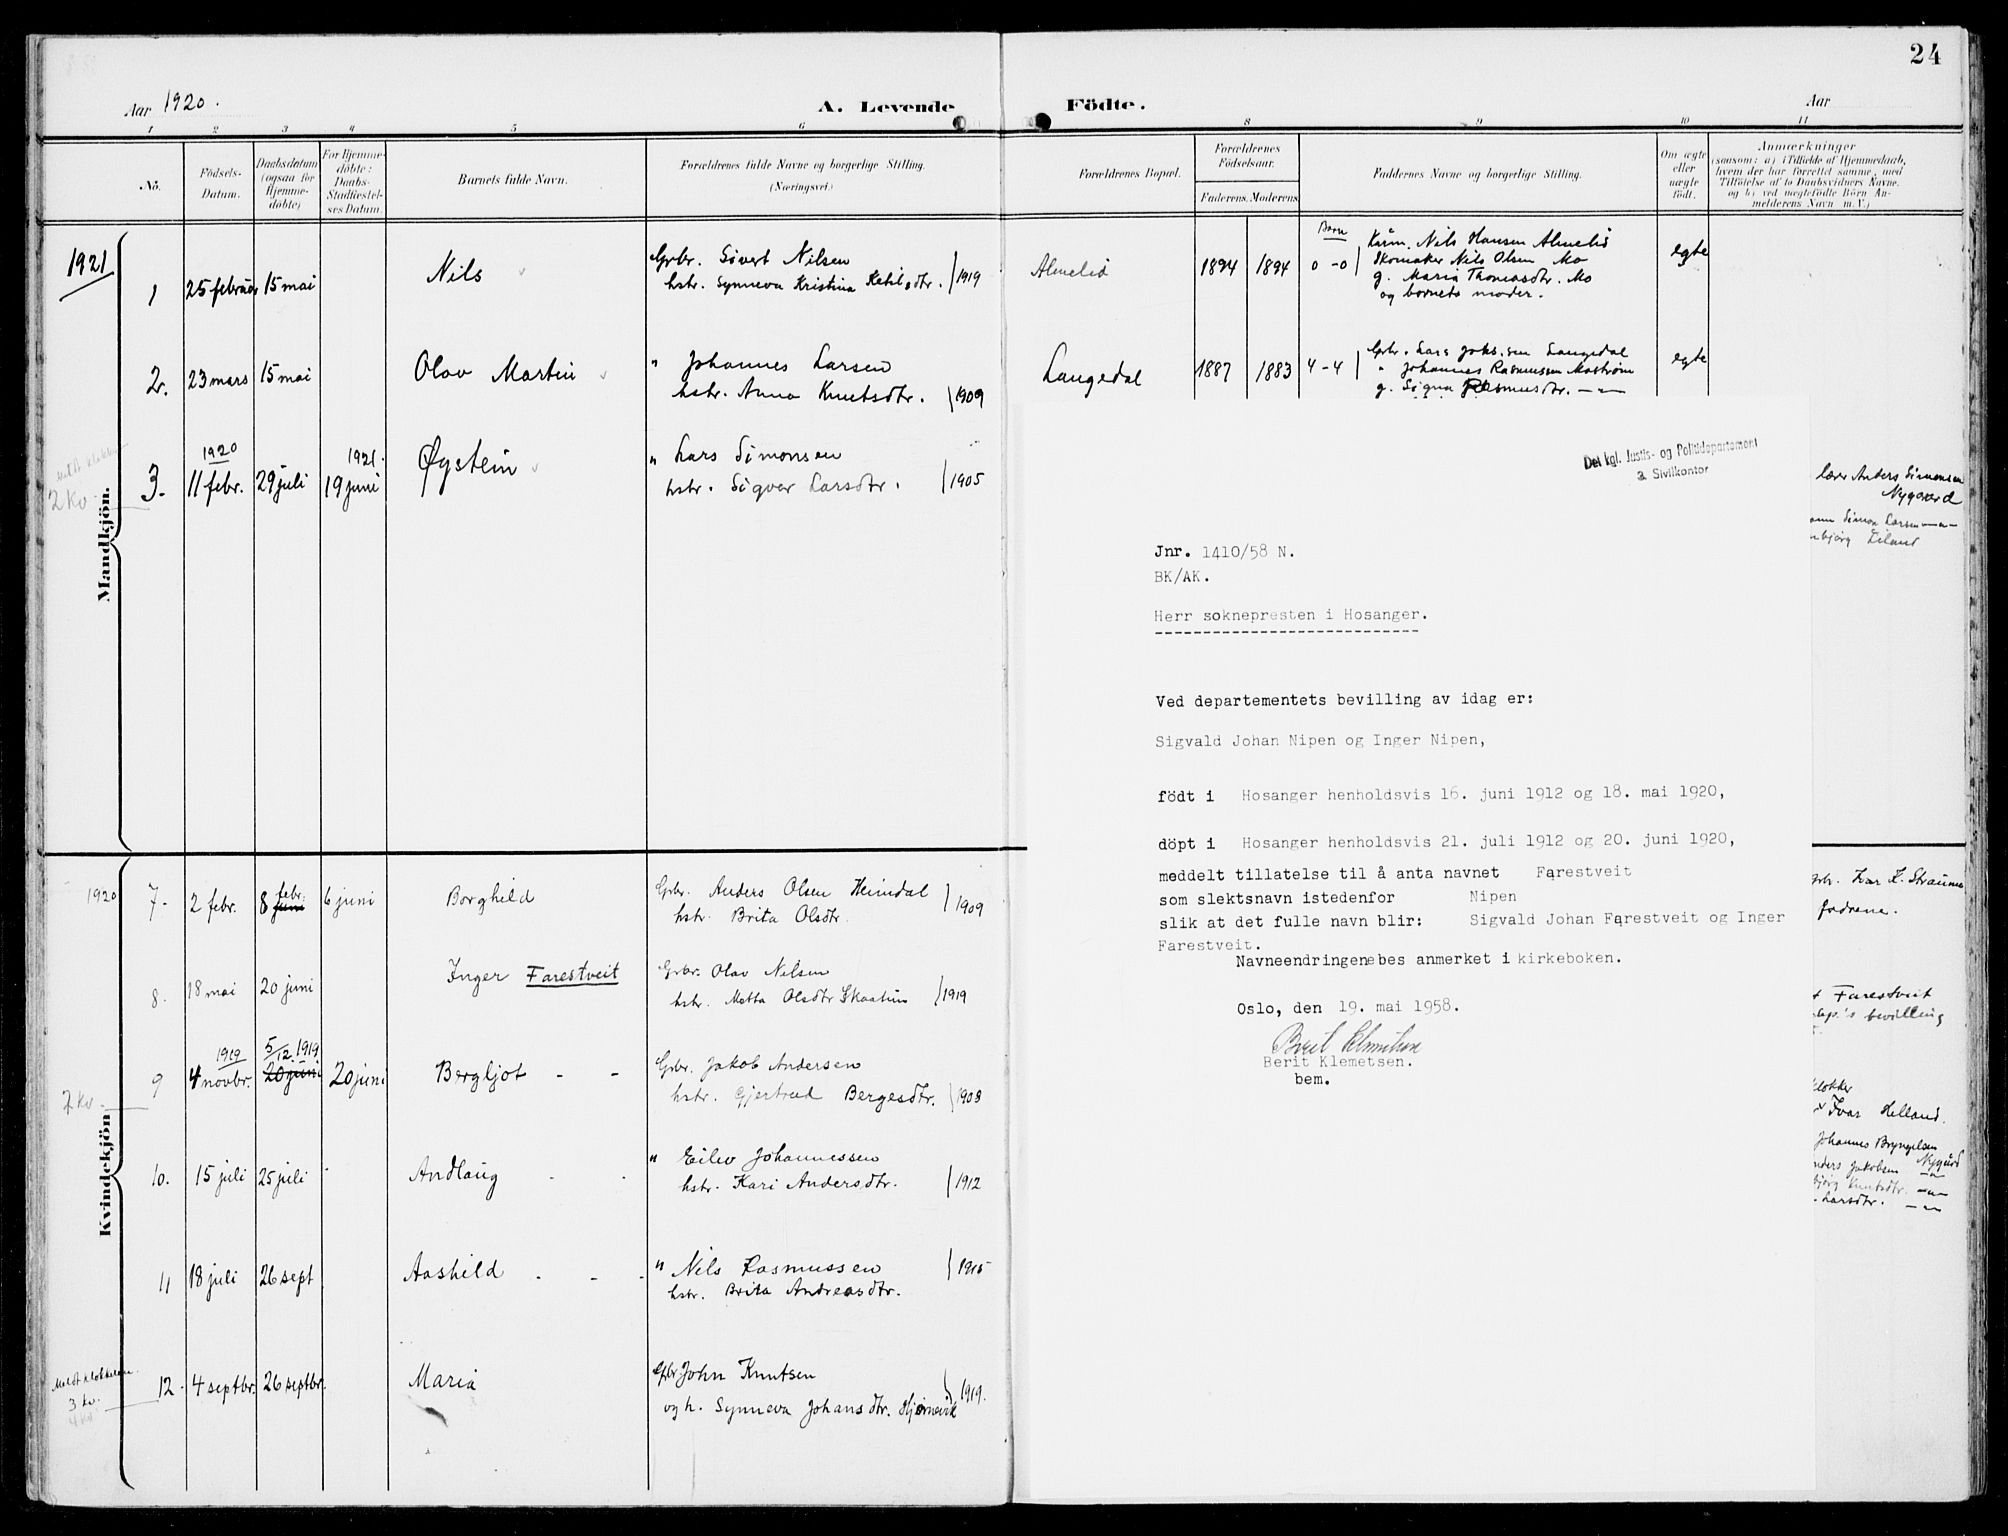 24
Aar 1920.
A. Levende
Födte.
Aar
1 2 3 4 5 6 8 9 10 11
No.
Födsels-
Datum.
Daabsdatum
(ogsaa for
Hjemme-
döbte)
For Hjemme-
döbte:
Daabs-
Stadfæstel-
ses Datum.
Barnets fulde Navn.
Forældrenes fulde Navne og borgerlige Stilling.
(Næringsvei.)
Forældrenes Bopæl.
Forældrenes
Födselsaar.
Faderens. Moderens.
Faddernes Navne og borgerlige Stilling.
Om ægte
eller
uægte
født.
Anmærkninger
(saasom: a) i Tilfælde af Hjemmedaab,
hvem der har forrettet samme, med
Tilföielse af to Daabsvidners Navne.
og b) ved uægtefödte Börn An-
melderens Navn m. V.)
1921
Mandkjön.
1 25 februar 15 mai Nils
Grbr. Sivert Nilsen
hstr. Synneva Kristina Ketilsdtr. 1919
Almelid 1894 1894
Barn
0 - 0
Kårm. Nils Hansen Almelid
Skomaker Nils Olsen Mo
g. Maria Thomasdtr. Mo
og barnets moder.
egte
2. 23 mars 15 mai Olav Martin
" Johannes Larsen
hstr. Anna Knutsdtr. 1909
Langedal 1887 1883 4 - 4
Gbr. Lars Joh.sen Langedal
" Johannes Rasmussen Mostrøm
g. Signa Rasmusdtr. — " —
egte
2 kv.
3. 1920 11 febr. 29 juli 1921. 19 juni Øystein
" Lars Simonsen
hstr. Sigver Larsdtr. 1905
lærer Anders Simonsen
Nygaard
Simon Larsen — " —
Eiland
Det kgl. Justis- og Politidepartement
3. Sivilkontor
Jnr. 1410/58 N.
BK/AK.
Herr soknepresten i Hosanger.
Ved departementets bevilling av idag er:
Sigvald Johan Nipen og Inger Nipen,
födt i Hosanger henholdsvis 16. juni 1912 og 18. mai 1920,
döpt i Hosanger henholdsvis 21. juli 1912 og 20. juni 1920,
meddelt tillatelse til å anta navnet Farestveit
som slektsnavn istedenfor Nipen
slik at det fulle navn blir: Sigvald Johan Farestveit og Inger
Farestveit.
Navneendringene bes anmerket i kirkeboken.
Oslo, den 19. mai 1958.
Berit Klemetsen
Berit Klemetsen.
bem.
1920
Kvindekjön
7. 2 febr. 8 juni febr. 6 juni Borghild
Gbr. Anders Olsen Heimdal
hstr. Brita Olsdtr. 1909
Ivar L. Straume
fadrene.
8. 18 mai 20 juni Inger Farestveit
Grbr. Olav Nilsen
hstr. Metta Olsdtr Skaatun 1919
Farestveit
bevilling
2 kv.
9 1919 4 novbr. 5/12 1919 20 juni 20 juni Bergljot - -
Gbr. Jakob Andersen
hstr. Gjertrud Bergesdtr. 1908
klokker
Ivar Helland.
10. 15 juli 25 juli Andlaug - -
" Eilev Johannessen
hstr. Kari Andersdtr. 1912
Johannes Brynjelsen
Anders Jakobsen Nygård
Knutsdtr. — " —
Larsdtr. — " —
11 18 juli 26 sept Aashild - - -
" Nils Rasmussen
hstr. Brita Andreasdtr. 1915
Meldt klokkeren
3 kv.
4 kv
12. 4 septbr. 26 septbr. Maria
Gbr John Knutsen
og h. Synneva Johansdtr. Hjørnevik 1919.